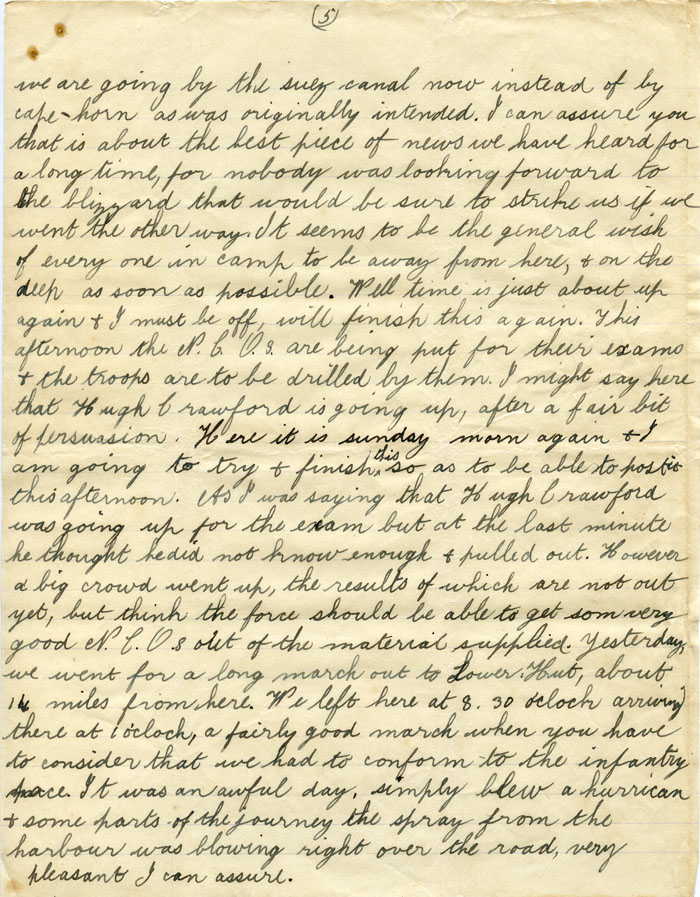 (5)
we are going by the suez canal now instead of by
cape-horn as was originally intended. I can assure you
that is about the best piece of news we have heard for
a long time, for nobody was looking forward to
the blizzard that would be sure to strike us if we
went the other way. It seems to be the general wish
of every one in camp to be away from here, & on the
deep as soon as possible. Well time is just about up
again & I must be off, will finish this again. This
afternoon the N.C.O.s. are being put for their exams
& the troops are to be drilled by them. I might say here
that Hugh Crawford is going up, after a fair bit
of persuasion. Here it is sunday morn again & I
am going to try & finish this so as to be able to post it
this afternoon. As I was saying that Hugh Crawford
was going up for the exam but at the last minute
he thought he did not know enough & pulled out. However
a big crowd went up, the results of which are not out
yet, but think the force should be able to get som very
good N.C.O.s out of the material supplied. Yesterday,
we went for a long march out to Lower Hut, about
14 miles from here. We left here at 8.30 oclock arriving
there at 1 oclock, a fairly good march when you have
to consider that we had to conform to the infantry
pace. It was an awful day, simply blew a hurrican
& some parts of the journey the spray from the
harbour was blowing right over the road, very
pleasant I can assure.